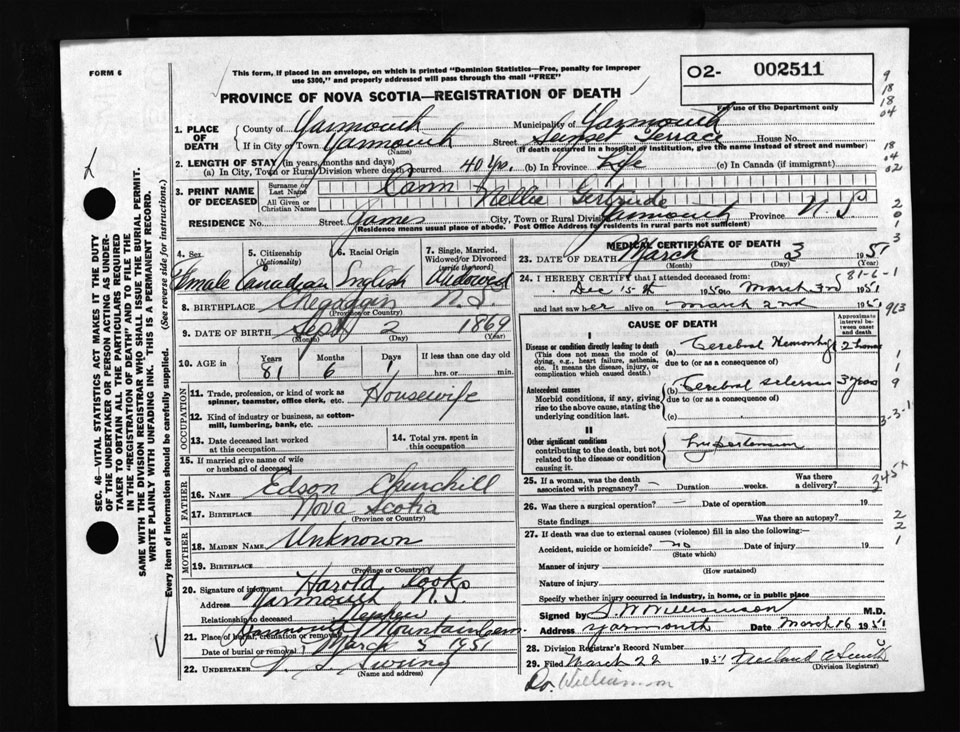 FORM 6
This form, if placed in an envelope, on which is printed "Dominion Statistics—Free, penalty for improper
use $300," and properly addressed will pass through the mail "FREE"
PROVINCE OF NOVA SCOTIA—REGISTRATION OF DEATH
O2- 002511
For use of the Department only
1. PLACE OF DEATH
County of Yarmouth Municipality of Yarmouth
If in City or Town Yarmouth (Name) Street Sunset Terrace House No.
(If death occurred in a hospital or institution, give the name instead of street and number)
2. LENGTH OF STAY (in years, months and days)
(a) In City, Town or Rural Division where death occurred 40 yrs. (b) In Province Life (c) In Canada (if immigrant)
3. PRINT NAME OF DECEASED
Surname or Last Name Cann
All Given or Christian Names Nellie Gertrude
RESIDENCE No. Street James City, Town or Rural Division Yarmouth Province N.S.
(Residence means usual place of abode. Post Office Address for residents in rural parts not sufficient)
4. Sex Female
5. Citizenship (Nationality) Canadian
6. Racial Origin English
7. Single, Married, Widowed or Divorced (write the word) Widowed
8. BIRTHPLACE Chegoggin N.S.
(Province or Country)
9. DATE OF BIRTH Sept 2 1869
(Month) (Day) (Year)
10. AGE in Years 81 Months 6 Days 1 If less than one day old hrs. or min.
OCCUPATION
11. Trade, profession, or kind of work as spinner, teamster, office clerk, etc. Housewife
12. Kind of industry or business, as cotton-mill, lumbering, bank, etc.
13. Date deceased last worked at this occupation
14. Total yrs. spent in this occupation
15. If married give name of wife or husband of deceased
FATHER
16. NAME Edson Churchill
17. BIRTHPLACE Nova Scotia
(Province or Country)
MOTHER
18. MAIDEN NAME Unknown
19. BIRTHPLACE
(Province or Country)
20. Signature of informant Harold Cook
Address Yarmouth N.S.
Relationship to deceased Nephew
21. Place of burial, cremation or removal Yarmouth Mountain Cem
Date of burial or removal March 5 1951
22. UNDERTAKER V. S. Sweeny
(Name and address)
MEDICAL CERTIFICATE OF DEATH
23. DATE OF DEATH March 3 1951
(Month) (Day) (Year)
24. I HEREBY CERTIFY that I attended deceased from: 81-6-1
Dec 15th 1950 to March 3rd 1951
and last saw her alive on March 2nd 1951
CAUSE OF DEATH
Approximate interval between onset and death
I
Disease or condition directly leading to death
(This does not mean the mode of dying, e.g., heart failure, asthenia, etc. It means the disease, injury, or complication which caused death.)
(a) Cerebral Hemorrhage 2 hours
due to (or as a consequence of)
Antecedent causes
Morbid conditions, if any, giving rise to the above cause, stating the underlying condition last.
(b) Cerebral sclerosis 3 years
due to (or as a consequence of)
(c)
II
Other significant conditions
contributing to the death, but not related to the disease or condition causing it.
Hypertension
25. If a woman, was the death associated with pregnancy? – Duration weeks. Was there a delivery?
26. Was there a surgical operation? – Date of operation 19
State findings Was there an autopsy?
27. If death was due to external causes (violence) fill in also the following:—
Accident, suicide or homicide? no Date of injury 19
(State which)
Manner of injury
(How sustained)
Nature of injury
Specify whether injury occurred in industry, in home, or in public place
Signed by S. W. Williamson M.D.
Address Yarmouth Date March 16 1951
28. Division Registrar's Record Number
29. Filed March 22 1951
(Division Registrar)
Dr. Williamson
SEC. 46—VITAL STATISTICS ACT MAKES IT THE DUTY
OF THE UNDERTAKER OR PERSON ACTING AS UNDER-
TAKER TO OBTAIN ALL THE PARTICULARS REQUIRED
IN THE "REGISTRATION OF DEATH" AND TO FILE THE
SAME WITH THE DIVISION REGISTRAR WHO SHALL ISSUE THE BURIAL PERMIT.
WRITE PLAINLY WITH UNFADING INK. THIS IS A PERMANENT RECORD.
Every item of information should be carefully supplied. (See reverse side for instructions.)
9
18
18
04
18
04
02
2
0
1
3
913
1
1
9
3-3-1
345x
2
2
1